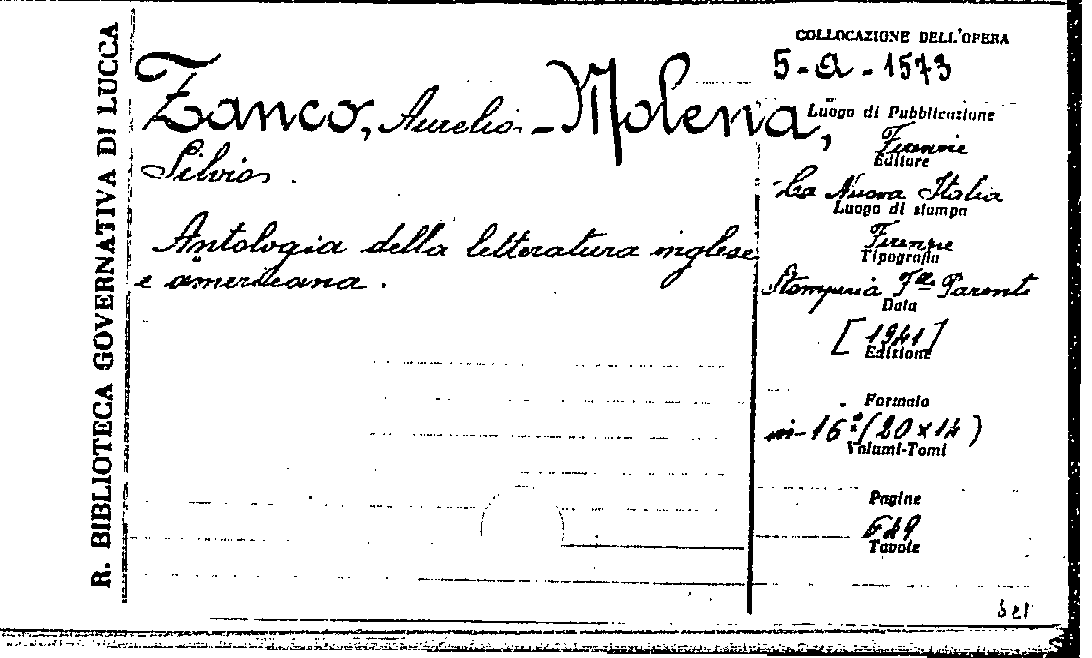 R. BIBLIOTECA GOVERNATIVA DI LUCCA
Zanco, Aurelio - Molena,
Silvio.
Antologia della letteratura inglese
e americana.
COLLOCAZIONE DELL'OPERA
5-a-1573
Luogo di Pubblicazione
Firenze
Editore
La Nuova Italia
Luogo di stampa
Firenze
Tipografia
Stamperia F.lli Parenti
Data
[1941]
Edizione
Formato
in-16° (20x14)
Volumi-Tomi
Pagine
649
Tavole